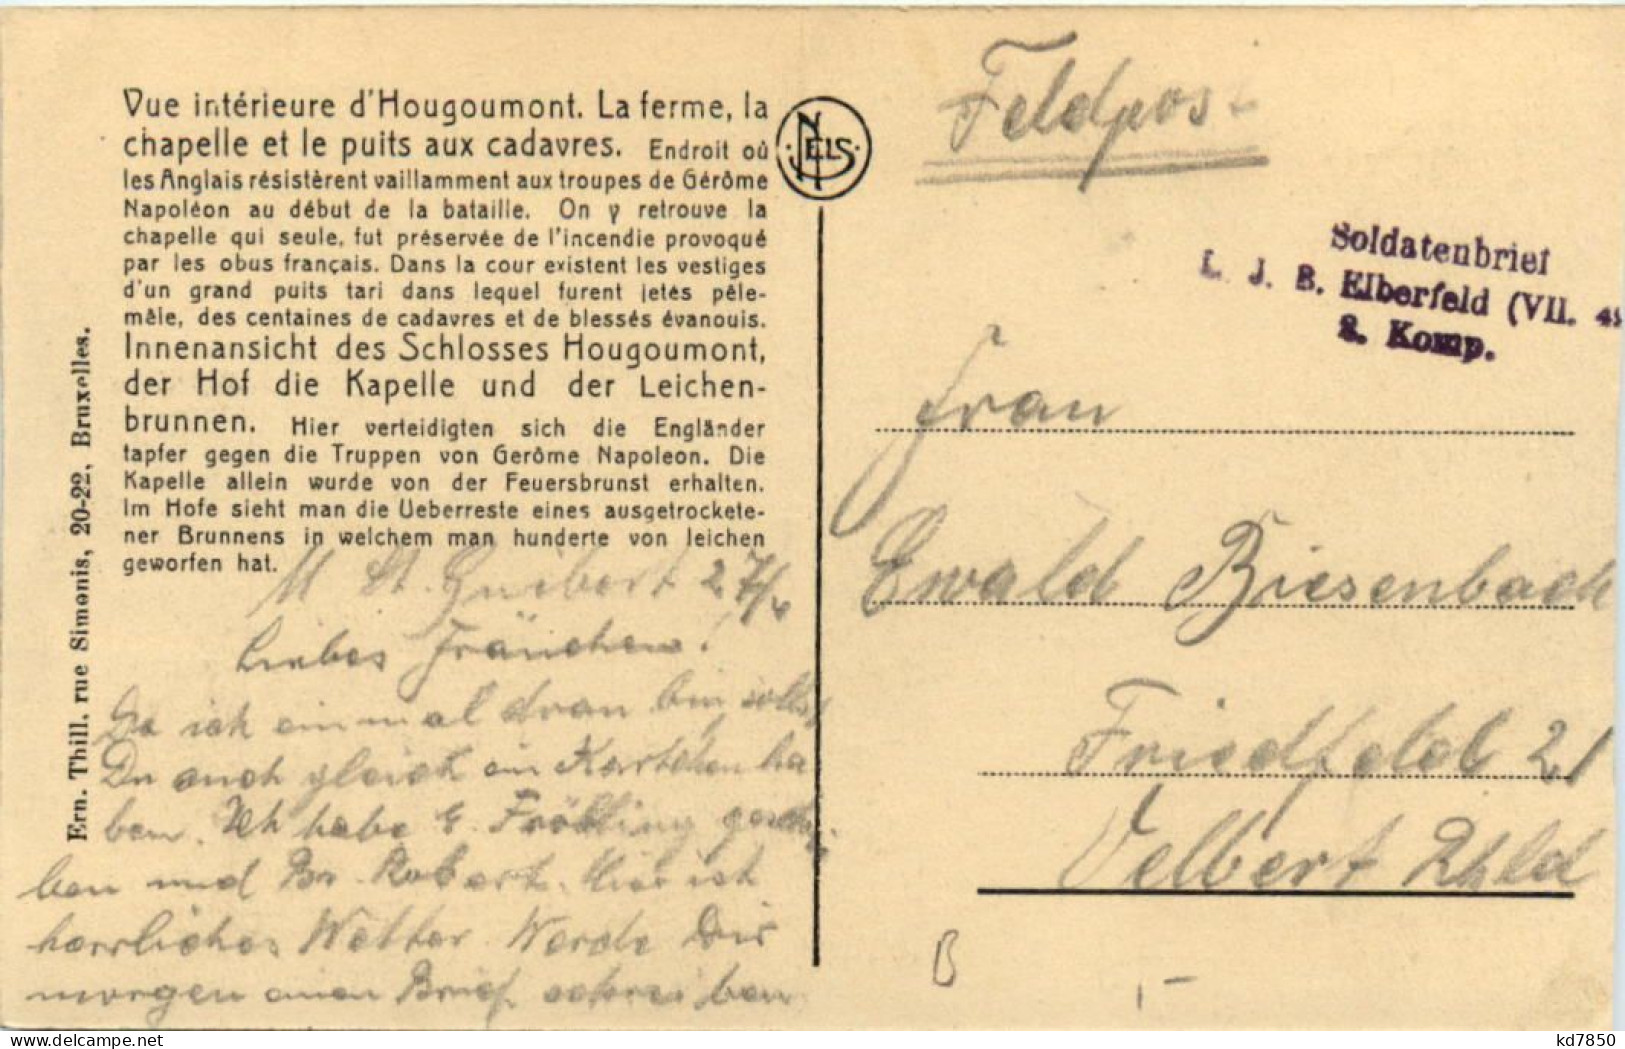 Vue intérieure d'Hougoumont. La ferme, la
chapelle et le puits aux cadavres. Endroit où
les Anglais résistèrent vaillamment aux troupes de Gérôme
Napoléon au début de la bataille. On y retrouve la
chapelle qui seule, fut préservée de l'incendie provoqué
par les obus français. Dans la cour existent les vestiges
d'un grand puits tari dans lequel furent jetés pêle-
mêle, des centaines de cadavres et de blessés évanouis.
Innenansicht des Schlosses Hougoumont,
der Hof die Kapelle und der Leichen-
brunnen. Hier verteidigten sich die Engländer
tapfer gegen die Truppen von Gerôme Napoleon. Die
Kapelle allein wurde von der Feuersbrunst erhalten.
Im Hofe sieht man die Ueberreste eines ausgetrockete-
ner Brunnens in welchem man hunderte von leichen
geworfen hat.
Ern. Thill, rue Simonis, 20-22, Bruxelles.
NELS
M St. Guibert 27/4
Liebes Fräuchen!
Da ich einmal dran bin sollst
Du auch gleich ein Kärtchen ha
ben. Ich habe E. Fröhling geschrie
ben und Br. Robert. Hier ist
herrliches Wetter. Werde Dir
morgen einen Brief schreiben
Feldpost
Soldatenbrief
L. J. B. Elberfeld (VII.
2. Komp.
Frau
Ewald Biesenbach
Friedfeld 21
Velbert Rhld
B
1-
kd7850